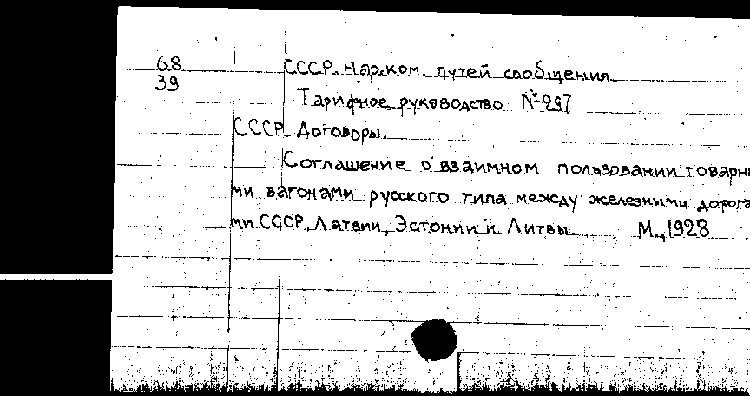 68
39
СССР. Нар.ком. путей сообщения
Тарифное руководство №297
СССР. Договоры.
Соглашение о взаимном пользовании товарны
ми вагонами русского типа между железными дорога
ми СССР, Латвии, Эстонии и Литвы. М., 1928